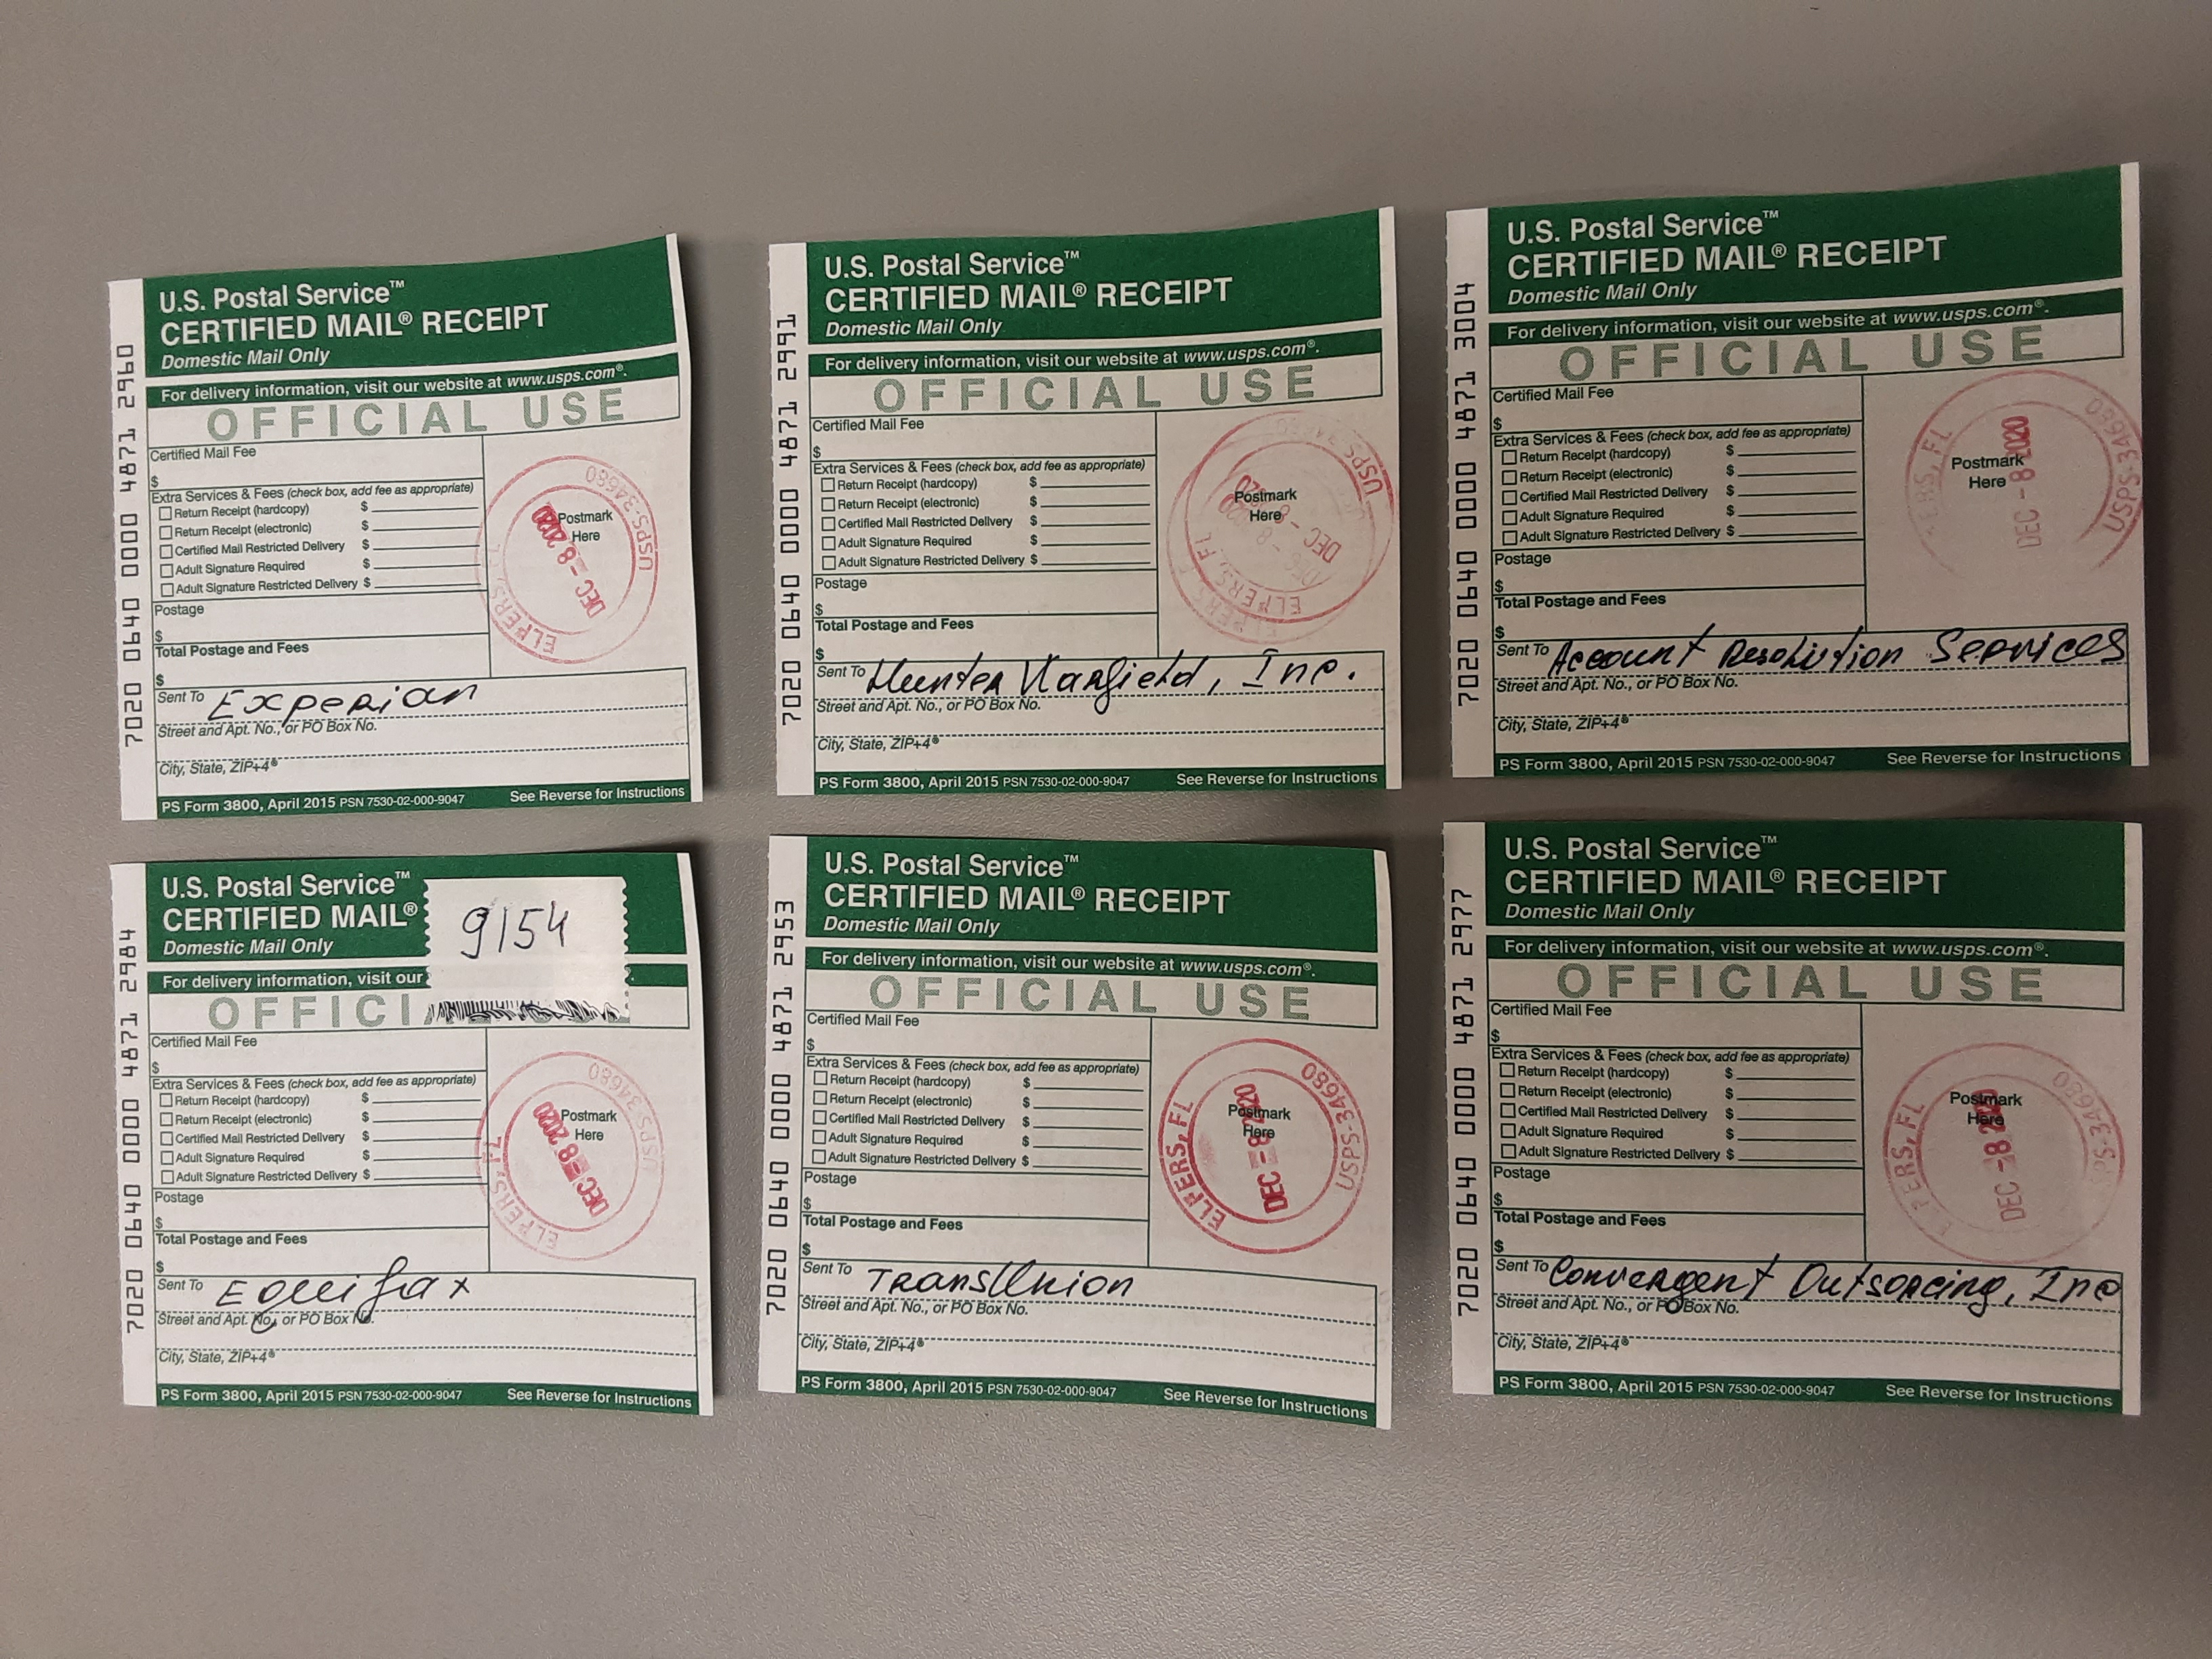 7020 0640 0000 4871 2984
U.S. Postal Service™
CERTIFIED MAIL®
Domestic Mail Only
For delivery information, visit our
9154
OFFICI
Certified Mail Fee
$
Extra Services & Fees (check box, add fee as appropriate)
Return Receipt (hardcopy) $
Return Receipt (electronic) $
Certified Mail Restricted Delivery $
Adult Signature Required $
Adult Signature Restricted Delivery $
Postage
$
Total Postage and Fees
$
Postmark
Here
ELPERS, FL
DEC -8 2020
USPS-34680
Sent To
Street and Apt. No., or PO Box No.
City, State, ZIP+4®
PS Form 3800, April 2015 PSN 7530-02-000-9047 See Reverse for Instructions
7020 0640 0000 4871 2960
U.S. Postal Service™
CERTIFIED MAIL® RECEIPT
Domestic Mail Only
For delivery information, visit our website at www.usps.com®.
OFFICIAL USE
Certified Mail Fee
$
Extra Services & Fees (check box, add fee as appropriate)
Return Receipt (hardcopy) $
Return Receipt (electronic) $
Certified Mail Restricted Delivery $
Adult Signature Required $
Adult Signature Restricted Delivery $
Postage
$
Total Postage and Fees
$
Postmark
Here
ELPERS, FL
DEC -8 2020
USPS-34680
Sent To Experian
Street and Apt. No., or PO Box No.
City, State, ZIP+4®
PS Form 3800, April 2015 PSN 7530-02-000-9047 See Reverse for Instructions
7020 0640 0000 4871 2953
U.S. Postal Service™
CERTIFIED MAIL® RECEIPT
Domestic Mail Only
For delivery information, visit our website at www.usps.com®.
OFFICIAL USE
Certified Mail Fee
$
Extra Services & Fees (check box, add fee as appropriate)
Return Receipt (hardcopy) $
Return Receipt (electronic) $
Certified Mail Restricted Delivery $
Adult Signature Required $
Adult Signature Restricted Delivery $
Postage
$
Total Postage and Fees
$
Postmark
Here
ELPERS, FL
DEC -8 2020
USPS-34680
Sent To TransUnion
Street and Apt. No., or PO Box No.
City, State, ZIP+4®
PS Form 3800, April 2015 PSN 7530-02-000-9047 See Reverse for Instructions
7020 0640 0000 4871 2991
U.S. Postal Service™
CERTIFIED MAIL® RECEIPT
Domestic Mail Only
For delivery information, visit our website at www.usps.com®.
OFFICIAL USE
Certified Mail Fee
$
Extra Services & Fees (check box, add fee as appropriate)
Return Receipt (hardcopy) $
Return Receipt (electronic) $
Certified Mail Restricted Delivery $
Adult Signature Required $
Adult Signature Restricted Delivery $
Postage
$
Total Postage and Fees
$
Postmark
Here
ELPERS, FL
DEC - 8
USPS
Sent To Hunter Warfield, Inc.
Street and Apt. No., or PO Box No.
City, State, ZIP+4®
PS Form 3800, April 2015 PSN 7530-02-000-9047 See Reverse for Instructions
7020 0640 0000 4871 2977
U.S. Postal Service™
CERTIFIED MAIL® RECEIPT
Domestic Mail Only
For delivery information, visit our website at www.usps.com®.
OFFICIAL USE
Certified Mail Fee
$
Extra Services & Fees (check box, add fee as appropriate)
Return Receipt (hardcopy) $
Return Receipt (electronic) $
Certified Mail Restricted Delivery $
Adult Signature Required $
Adult Signature Restricted Delivery $
Postage
$
Total Postage and Fees
$
Postmark
Here
PERS, FL
DEC -8 2020
PS-34680
Sent To Convergent Outsorcing, Inc
Street and Apt. No., or PO Box No.
City, State, ZIP+4®
PS Form 3800, April 2015 PSN 7530-02-000-9047 See Reverse for Instructions
7020 0640 0000 4871 3004
U.S. Postal Service™
CERTIFIED MAIL® RECEIPT
Domestic Mail Only
For delivery information, visit our website at www.usps.com®.
OFFICIAL USE
Certified Mail Fee
$
Extra Services & Fees (check box, add fee as appropriate)
Return Receipt (hardcopy) $
Return Receipt (electronic) $
Certified Mail Restricted Delivery $
Adult Signature Required $
Adult Signature Restricted Delivery $
Postage
$
Total Postage and Fees
$
Postmark
Here
ERS, FL
DEC - 8 2020
USPS-34680
Sent To Account Resolution Services
Street and Apt. No., or PO Box No.
City, State, ZIP+4®
PS Form 3800, April 2015 PSN 7530-02-000-9047 See Reverse for Instructions